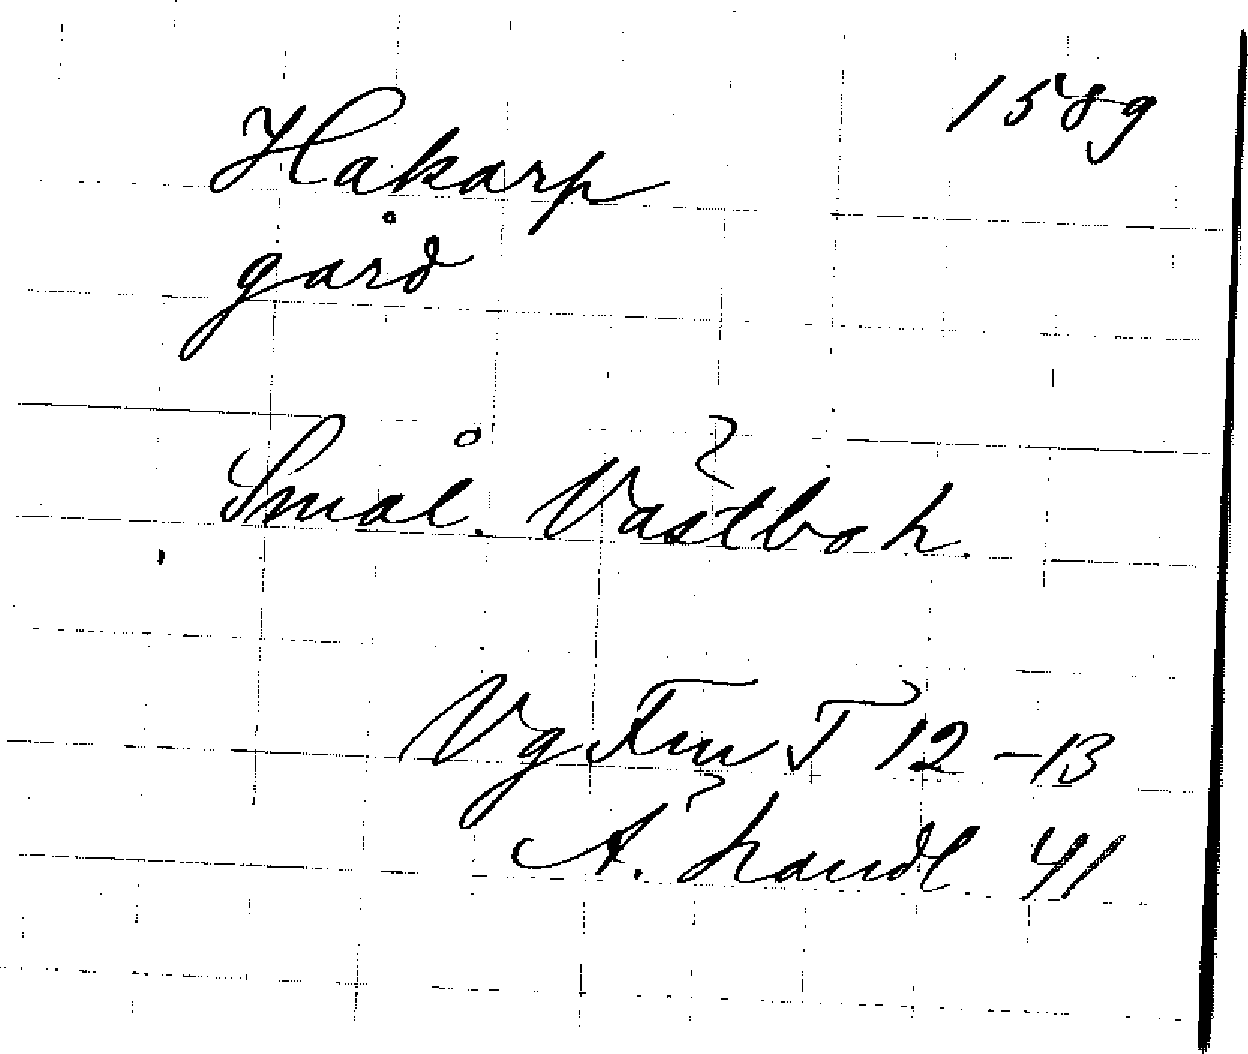 1589
Hakarp
gård
Smål. Västbo h.
Vg Fm T 12-13
A. handl 41